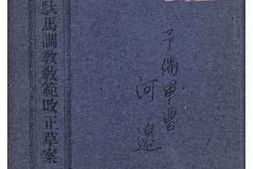 予備軍曹
河邊
駄馬調教教範改正草案